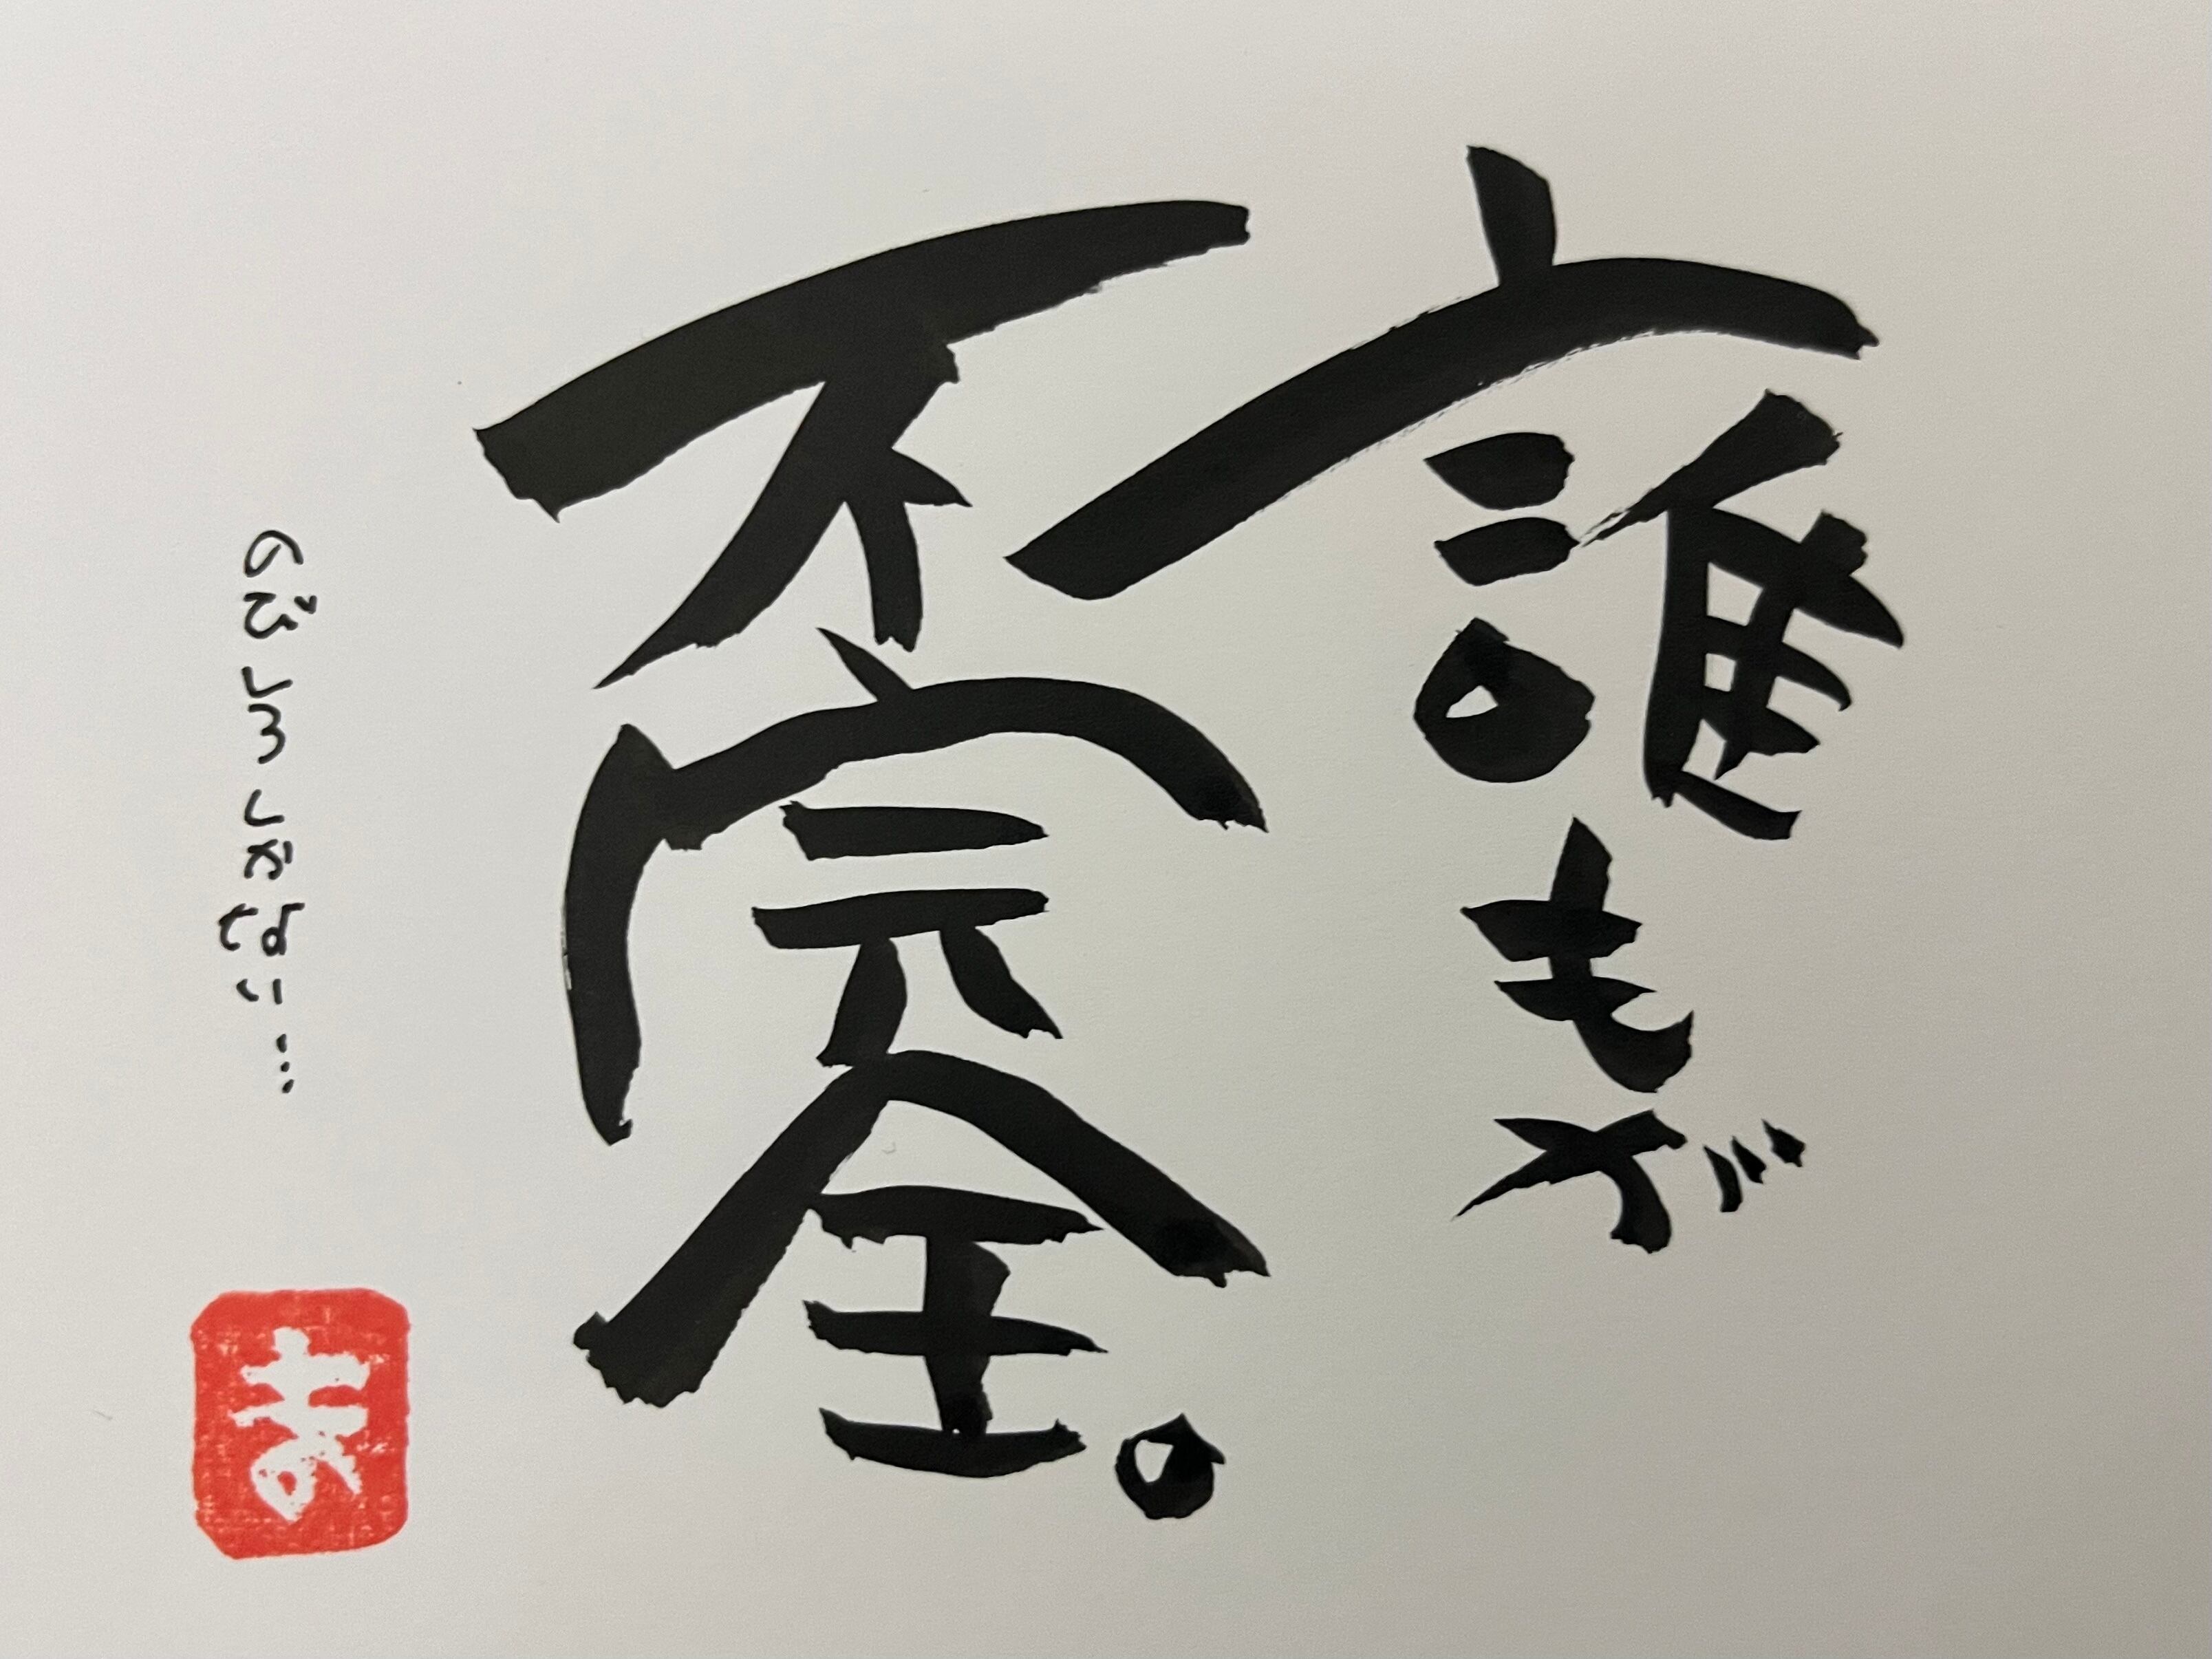 誰もが
不完全。
のびしろしかない…
ま